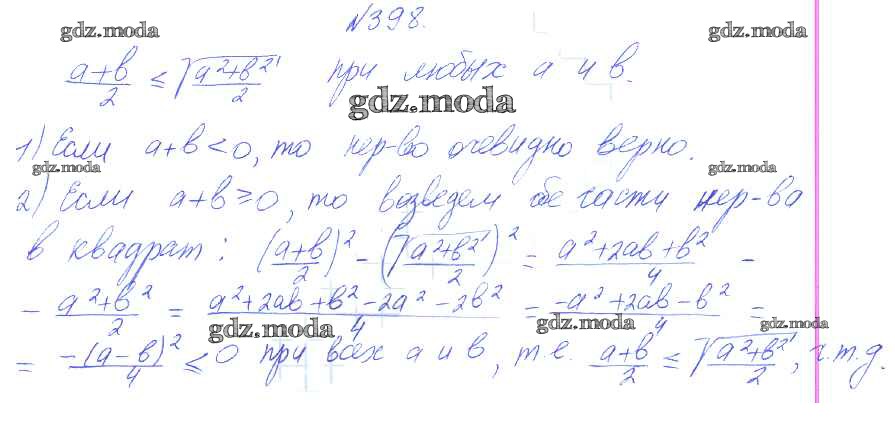 №398.
gdz.moda gdz.moda
(a+b)/2 ≤ √((a²+b²)/2) при любых a и b.
gdz.moda
1) Если a+b<0, то нер-во очевидно верно.
gdz.moda gdz.moda
2) Если a+b≥0, то возведем обе части нер-ва
в квадрат: ((a+b)/2)² - (√((a²+b²)/2))² = (a²+2ab+b²)/4 -
- (a²+b²)/2 = (a²+2ab+b²-2a²-2b²)/4 = (-a²+2ab-b²)/4 =
gdz.moda gdz.moda gdz.moda
= (-(a-b)²)/4 ≤ 0 при всех a и b, т.е. (a+b)/2 ≤ √((a²+b²)/2), ч.т.д.